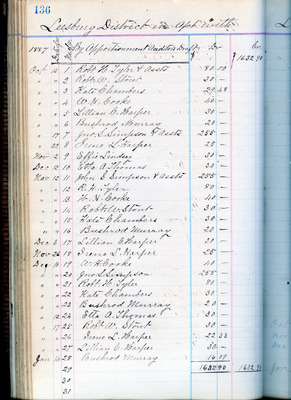 136
Leesburg District in Apt. with
1887 By Apportionment Auditors Draft Dr Cr
$1632 90
Oct 15 1 Robt H. Tyler & Assts 80 00
" " 2 Robt W. Stout 30 —
" " 3 Kate Chambers 29 48
" " 4 W. H. Cooke 40 —
" " 5 Lillian E. Harper 30 —
" " 6 Bushrod Murray 20 —
" " 7 Jno. S. Simpson & Assts 255 —
" 22 8 Irene L. Harper 25 —
Nov 2 9 Effie Linden 30 —
Dec 12 10 Ella A. Thomas 30 —
Nov 12 11 John S. Simpson & Assts 255 —
" " 12 R. H. Tyler 80 —
" " 13 W. H. Cooke 40 —
" " 14 Robt W. Stout 30 —
" " 15 Kate Chambers 30 —
" " 16 Bushrod Murray 20 —
Dec 3 17 Lillian E. Harper 30 —
Nov 26 18 Irene L. Harper 25 —
Dec 19 W. H. Cooke 40 —
" " 20 Jno. S. Simpson 255 —
" " 21 Robt H. Tyler 80 —
" " 22 Kate Chambers 30 —
" " 23 Bushrod Murray 20 —
" 24 Ella A. Thomas 30 —
" 17 25 Robt. W. Stout 30 —
" " 26 Irene L. Harper 22 33
" " 27 Lillian E. Harper 30 —
Jan 14 28 Bushrod Murray 16 09
29 1632 90 1632 90
30
31